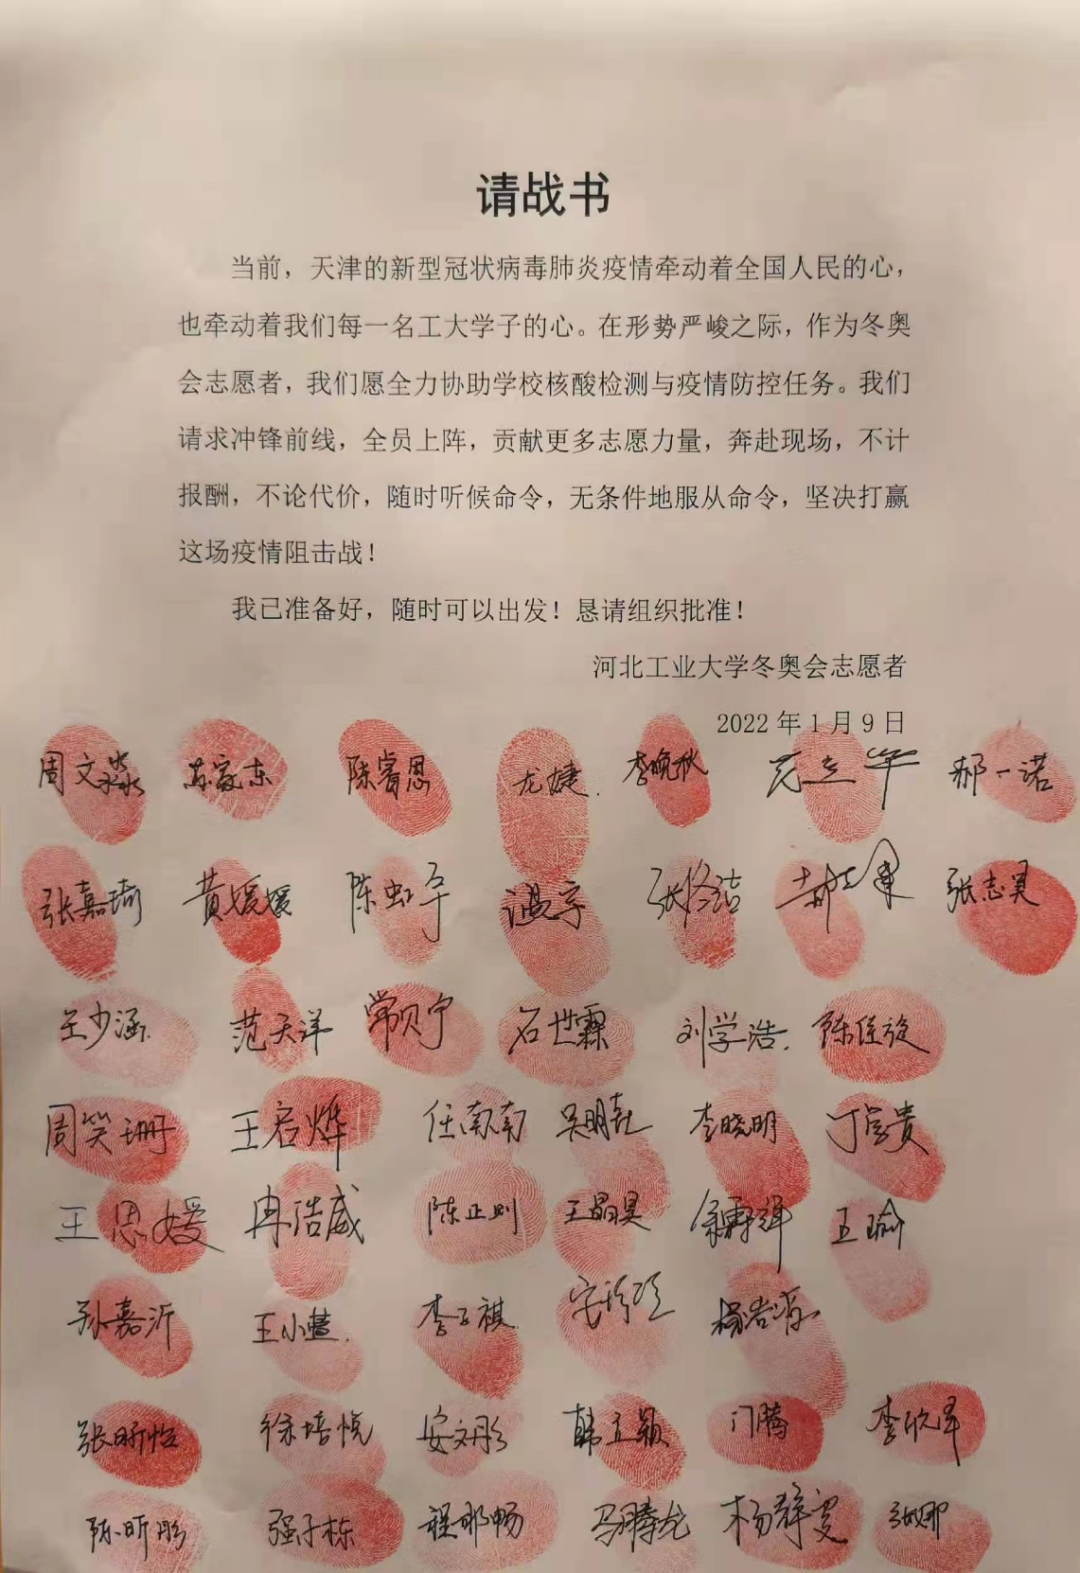 请战书
当前，天津的新型冠状病毒肺炎疫情牵动着全国人民的心，
也牵动着我们每一名工大学子的心。在形势严峻之际，作为冬奥
会志愿者，我们愿全力协助学校核酸检测与疫情防控任务。我们
请求冲锋前线，全员上阵，贡献更多志愿力量，奔赴现场，不计
报酬，不论代价，随时听候命令，无条件地服从命令，坚决打赢
这场疫情阻击战！
我已准备好，随时可以出发！恳请组织批准！
河北工业大学冬奥会志愿者
2022 年 1 月 9 日
周文淼 苏家东 陈睿恩 龙婕. 李晚秋 郝一诺
张嘉琦 黄媛媛 陈虹宇 温宇 张志昊
王少涵 范天洋 常贝宁 石世霖 刘学浩.
周笑珊 王启烨 任南南 李晓明
王思媛 冉浩威 陈正则 王晶昊 王瑜
孙嘉沂 王小萱. 李子祺
张昕怡 徐培悦 安文彤 韩立颖 门腾 李欣泽
陈昕彤 强子栋 程耶畅 马腾龙 杨静雯 张娜